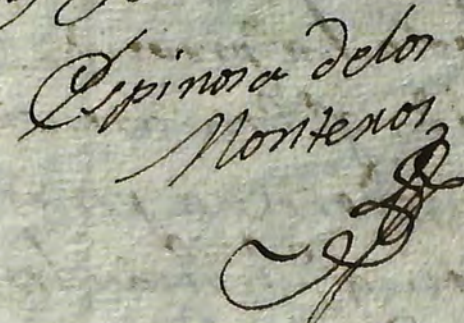 Espinosa delos
Monteros